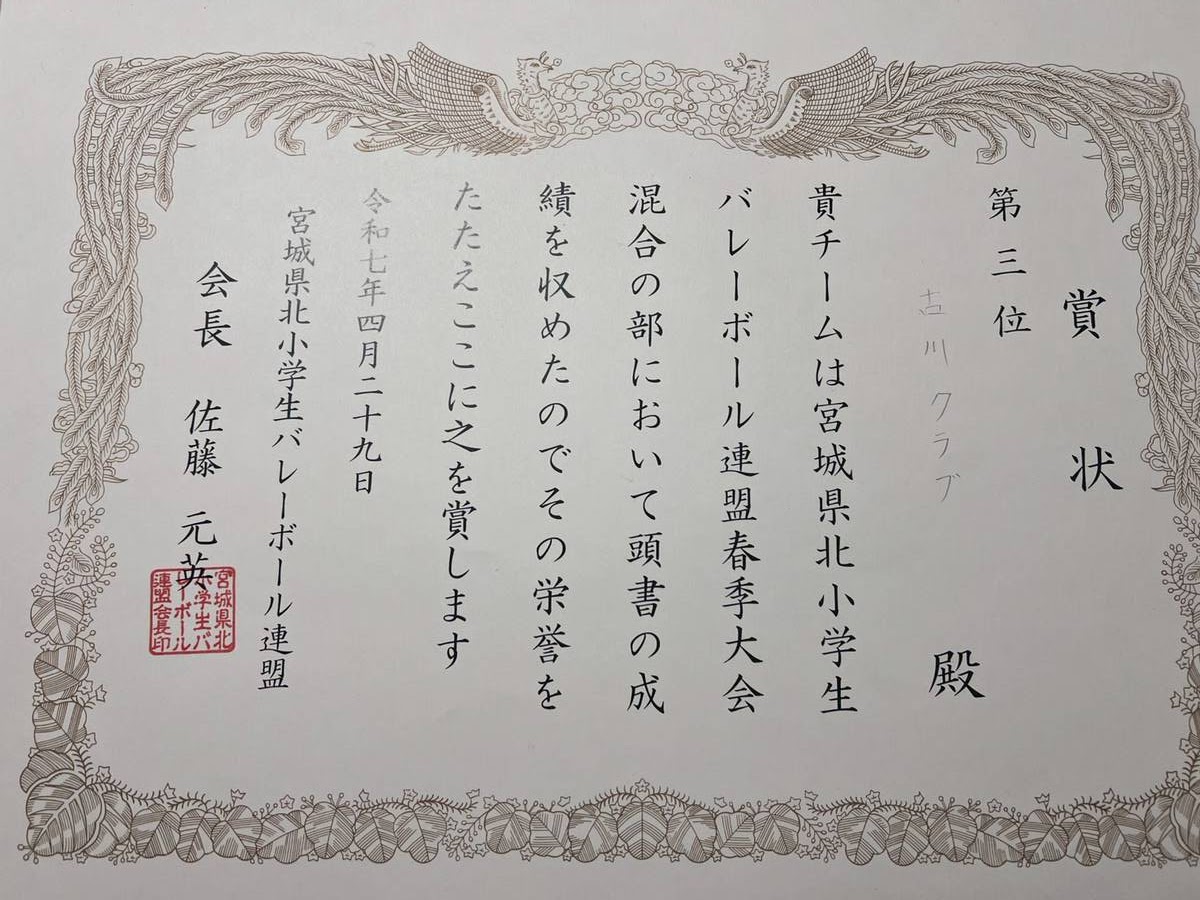 賞状
第三位
古川クラブ 殿
貴チームは宮城県北小学生
バレーボール連盟春季大会
混合の部において頭書の成
績を収めたのでその栄誉を
たたえここに之を賞します
令和七年四月二十九日
宮城県北小学生バレーボール連盟
会長 佐藤 元英
宮城県北
小学生バ
レーボール
連盟会長印